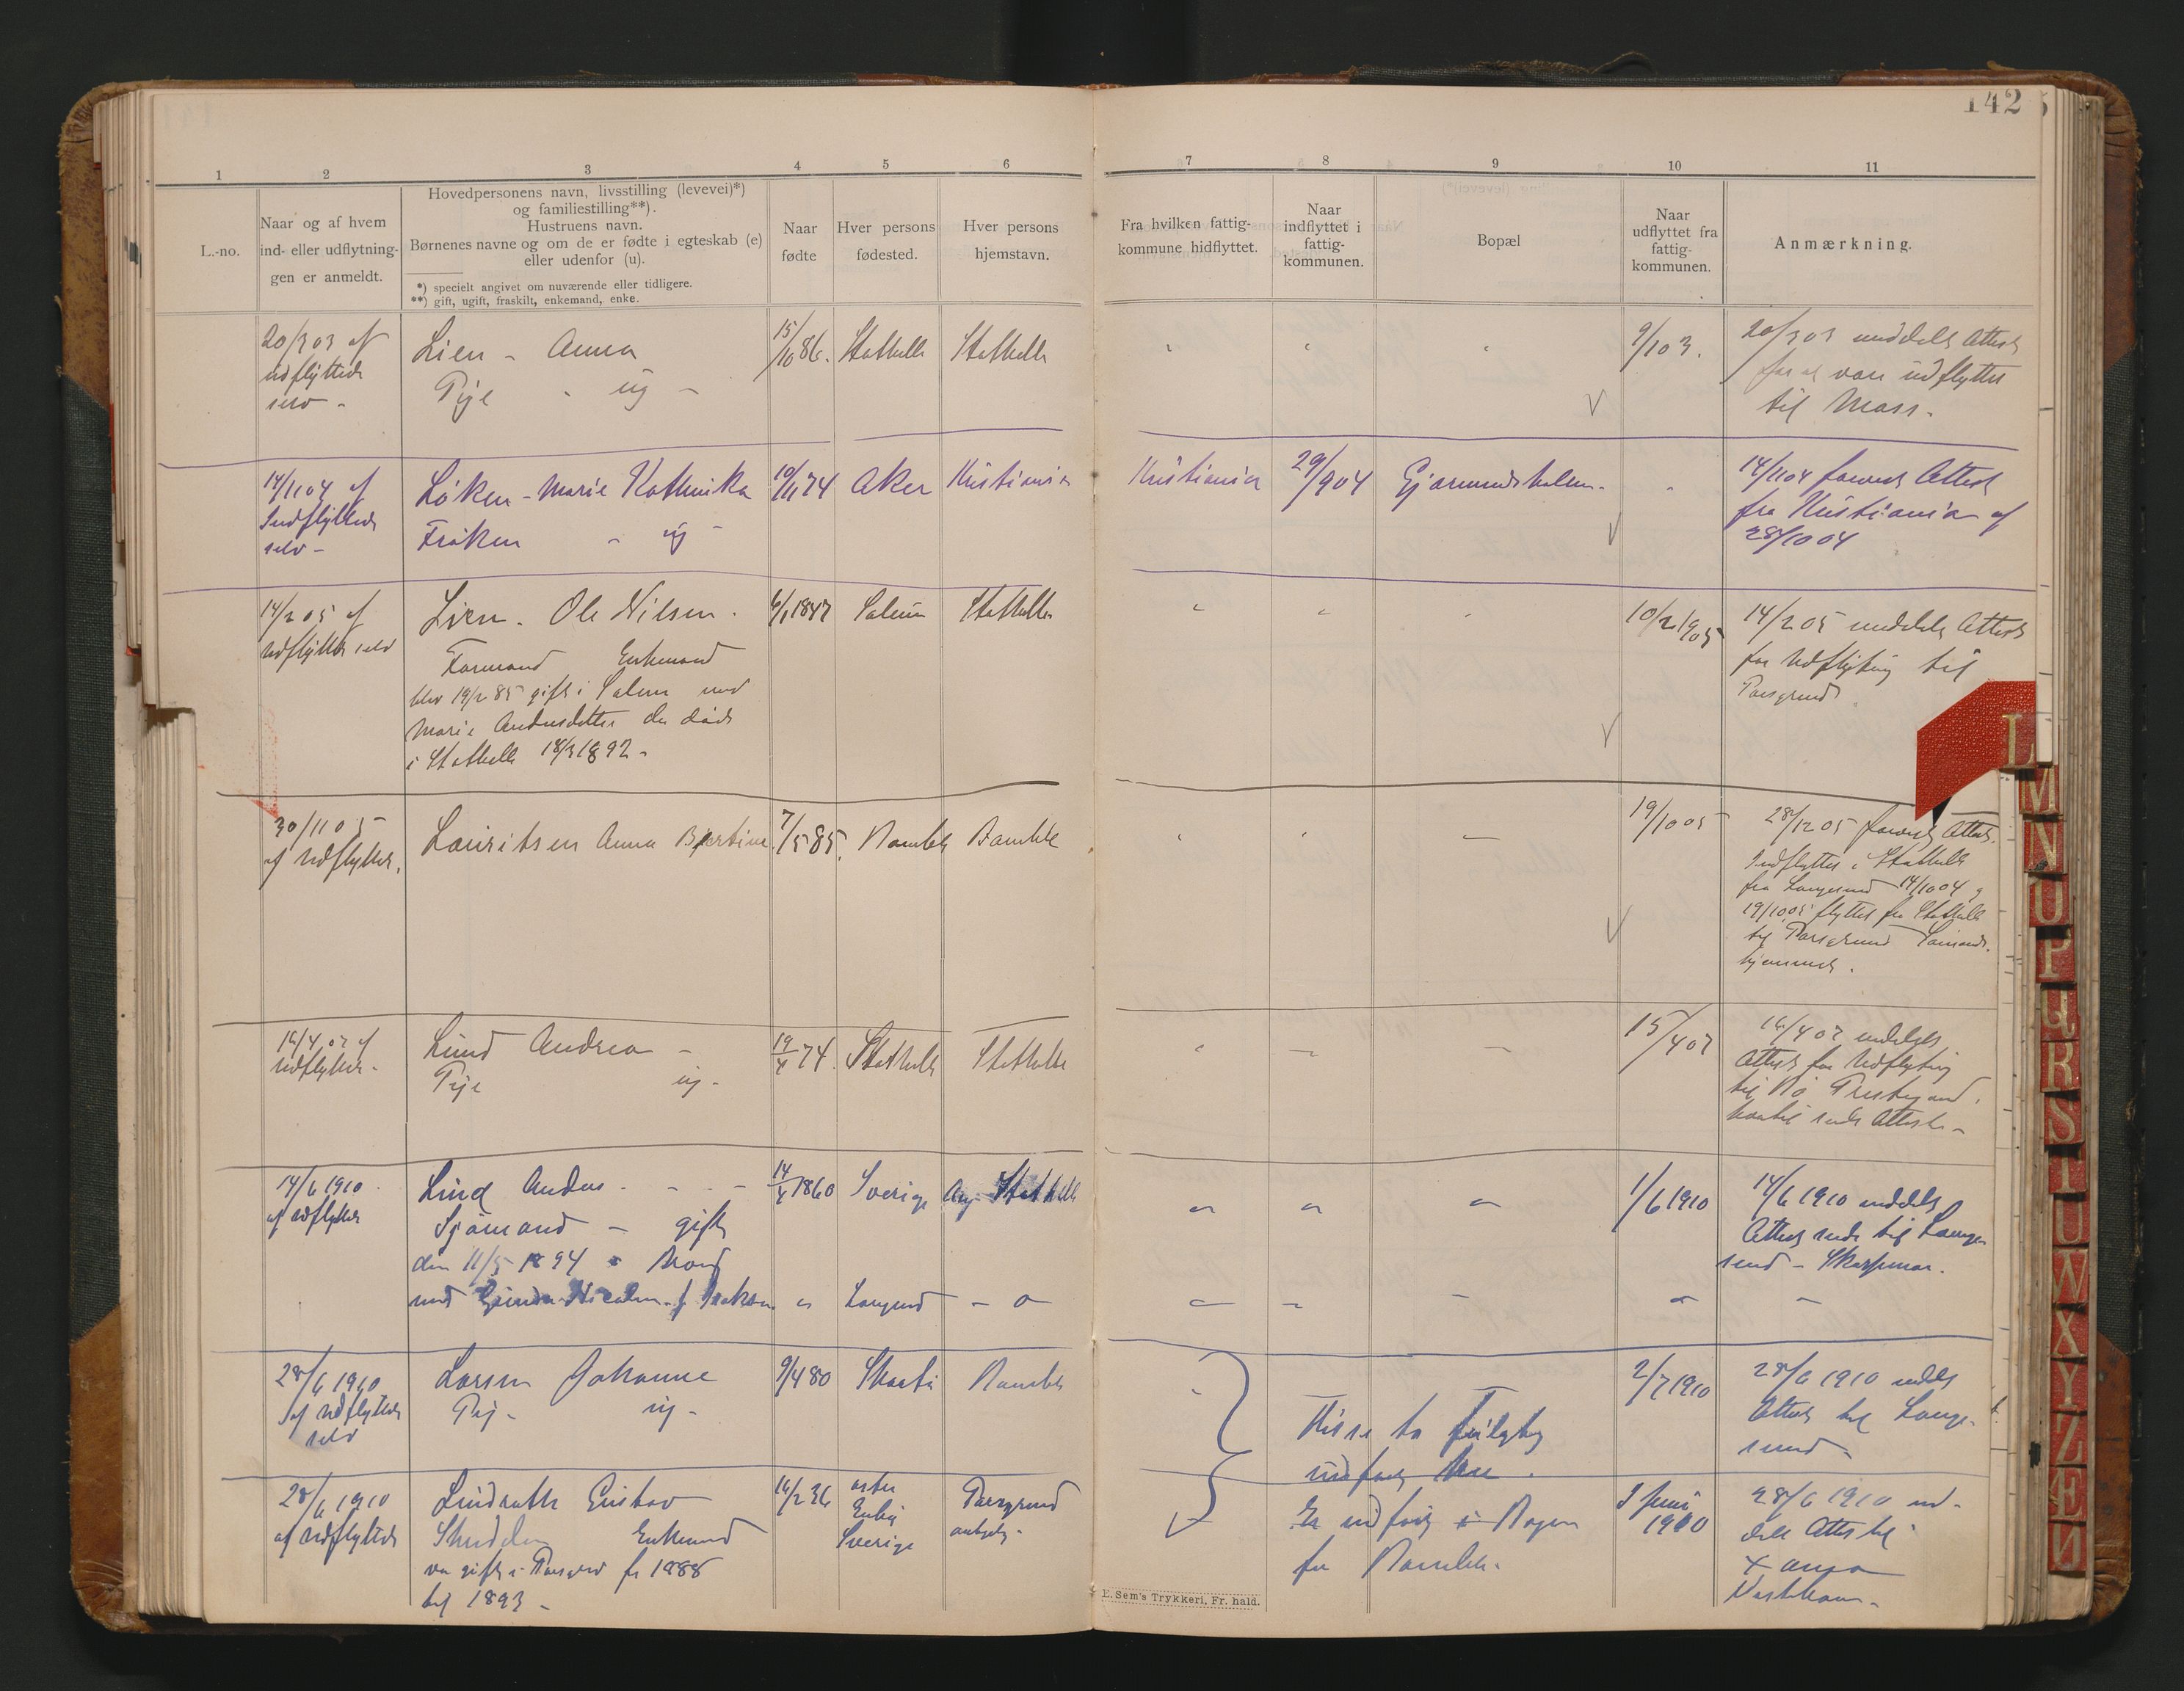 142
1 2 3 4 5 6 7 8 9 10 11
L.-no.
Naar og af hvem
ind- eller udflytnin-
gen er anmeldt.
Hovedpersonens navn, livsstilling (levevei)*)
og familiestilling**).
Hustruens navn.
Børnenes navne og om de er fødte i egteskab (e)
eller udenfor (u).
*) specielt angivet om nuværende eller tidligere.
**) gift, ugift, fraskilt, enkemand, enke.
Naar
fødte
Hver persons
fødested.
Hver persons
hjemstavn.
Fra hvilken fattig-
kommune hidflyttet.
Naar
indflyttet i
fattig-
kommunen.
Bopæl
Naar
udflyttet fra
fattig-
kommunen.
Anmærkning.
20/3 03 af
udflyttede
selv -
Lien - Anna
Pige - ug -
15/10 86.
Stathelle
Stathelle
9/1 03.
20/3 03 meddelt Attest
for at være udflyttet
til Moss.
14/11 04 af
Indflyttede
selv -
Løken - Marie Kathinka
Frøken - ug -
10/11 74
Aker
Kristiania
Kristiania
29/9 04
Gjermundsholmen.
14/11 04 forevist Attest
fra Kristiania af
28/10 04
14/2 05 af
udflyttede selv
Lien. Ole Nilsen.
Formand Enkemand
blev 19/2 85 gift i Solum med
Marie Andersdatter der døde
i Stathelle 18/3 1892 -
6/1 1847
Solum
Stathelle
10/2 1905
14/2 05 meddelt Attest
for Udflytning til
Porsgrund
30/11 05
af Udflyttede.
Lauritsen Anna Bertine.
7/5 85.
Bamble
Bamble
19/10 05
28/12 05 forevist Attest.
Indflyttet i Stathelle
fra Langesund 14/10 04 og
19/10 05 flyttet fra Stathelle
til Porsgrund Sømands-
hjemmet.
16/4 07 af
Udflyttede -
Lund Andrea -
Pige ug -
19/4 74.
Stathelle
Stathelle
15/4 07
16/4 07 meddelt
Attest for Udflytning
til Bø Prestegaard.
hvortil sendt Attesten -
14/6 1910
af udflyttede
Lind Anders - - -
Sjømand - gift
den 11/5 1894 i
med
14/4 1860
Sverige
Ang. Stathelle
Langesund
1/6 1910
14/6 1910 meddelt
Attest sendt til Lange-
sund -
28/6 1910
af udflyttede
selv
Larsen Johanne
Pige - ug -
9/4 80
Skaatø
Bamble
Disse to
indført
2/7 1910
28/6 1910 meddelt
Attest til Lange-
sund -
28/6 1910
af udflyttede
Lindroth Gustav
Enkemand
var gift i Porsgrund fr 1888
til 1893 -
16/2 36
Sverige
Porsgrund
Er indført i Bogen
for Bamble.
1 juni
1910
28/6 1910 med-
delt Attest til
E. Sem's Trykkeri, Fr. hald.
L
M
N
O
P
Q
R
S
T
U
W
X
Y
Z
Æ
Ø